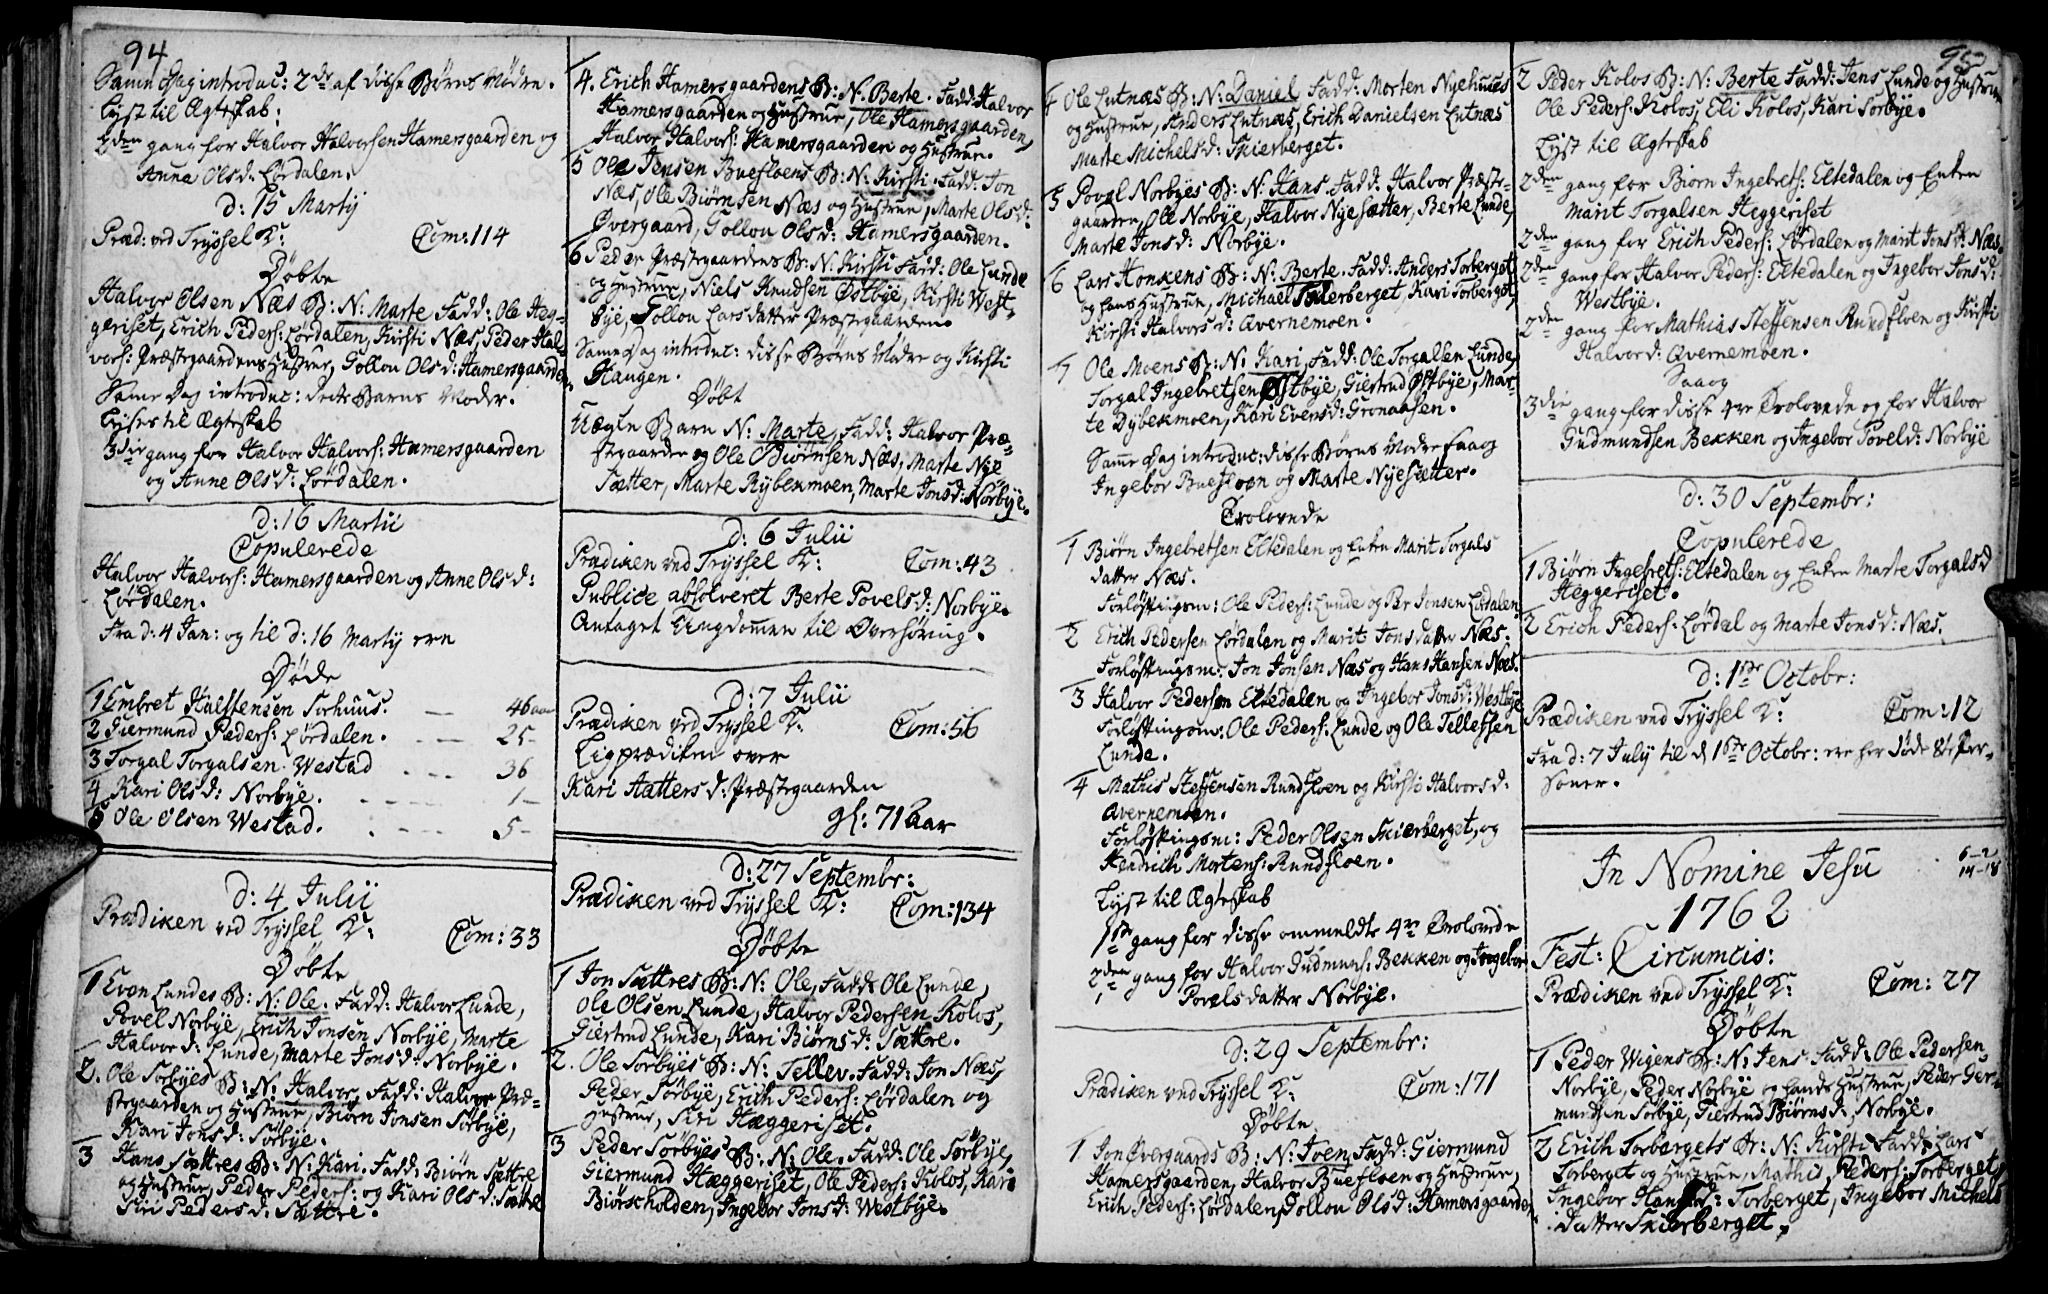 94
Samme Dag introduc: 2de af disse Børns Mødre.
Lyst til Ægteskab:
2den gang for Halvor Halvorsen Hamersgaarden og
Anna Olsd: Lørdalen.
d: 15 Martij
Præd: ved Tryssel K: Com: 114
Døbte
Halvor Olsen Næs B: N: Marte Fadd: Ole Heg-
geriset, Erich Peders: Lørdalen, Kirsti Næs, Peder Hal-
vors: Præstgaardens Hustrue, Gollou Olsd: Hamersgaarden.
Samme Dag introduc: dette Barns Moder.
Lyses til Ægteskab
3die gang for Halvor Halvors: Hamersgaarden
og Anne Olsd: Lørdalen.
D: 16 Martii
Copulerede
Halvor Halvors: Hamersgaarden og Anne Olsd:
Lørdalen.
Fra d: 4 Jan: og til d: 16 Martij ere
Døde
1 Embret Halstensen Sorhuus. 46 aar
2 Giermund Peders: Lørdalen. 25 -
3 Torgal Torgalsen Westad 36
4 Kari Olsd: Norbye. 1 -
5 Ole Olsen Westad. 5 -
D: 4 Julii
Prædiken ved Tryssel K: Com: 33
Døbte
1 Even Lundes B: N: Ole. Fadd: Halvor Lunde,
Povel Norbye, Erich Jonsen Norbye, Marte
Halvord: Lunde, Marte Jonsd: Norbye.
2. Ole Sorbyes B: N: Halvor, Fadd: Halvor Præ-
stegaarden og Hustrue, Biørn Jonsen Sørbye,
Kari Jonsd: Sørbye.
3 Hans Sættres B: N: Kari. Fadd: Biørn Sættre
og Hustrue, Peder Peders: og Kari Olsd: Sættre
Siri Pedersd: Sættre.
4. Erich Hamersgaardens B: N: Berte. Fadd: Halvor
Hamersgaarden og Hustrue, Ole Hamersgaarden,
Halvor Halvors: Hamersgaarden og Hustrue.
5 Ole Jensen Buefloens B: N: Kirsti. Fadd: Jon
Næs, Ole Biørnsen Næs og Hustrue, Marte Olsd:
Øvergaard, Gollou Olsd: Hamersgaarden.
6 Peder Præstegaardens B: N: Kirsti Fadd: Ole Lunde
og Hustrue, Niels Knudsen Østbye, Kirsti West-
bye, Gollou Larsdatter Præstegaarden.
Same Dag introduc: disse Børns Mødre og Kirsti
Haugen.
Døbt
Uægte Barn N: Marte, Fadd: Halvor Præ-
stgaarden og Ole Biørnsen Næs, Marte Nye
Sætter, Marte Rybekmoen, Marte Jonsd: Norbye.
D: 6 Julii
Prædiken ved Tryssel K: Com: 43
Publice absolveret Berte Povelsd: Norbye.
Antaget Ungdommen til Overhøring.
D: 7 Julii
Prædiken ved Tryssel K: Com: 56
Ligprædiken over
Kari Hattersd: Præstgaarden
gl: 71 Aar
D: 27 Septembr:
Prædiken ved Tryssel K: Com: 134
Døbte
1 Jon Sættres B: N: Ole, Fadd: Ole Lunde,
Ole Olsen Lunde, Halvor Pedersen Kolos,
Giertrud Lunde, Kari Biørnsd: Sættre.
2. Ole Sorbyes B: N: Tellev. Fadd: Jon Næs,
Peder Sørbye, Erich Peders: Lørdalen og
Hustrue, Siri Hæggeriset.
3 Peder Sørbyes B: N: Ole. Fadd: Ole Sørbye,
Giermund Hæggeriset, Ole Peders: Kolos, Kari
Biørseholden, Ingebor Jonsd: Westbye.
4 Ole Lutnæs B: N: Daniel Fadd: Morten Nyehuus
og Hustrue, Anders Lutnæs, Erich Danielsen Lutnæs
Marte Michelsd: Skierberget.
5 Povel Norbyes B: N: Hans. Fadd: Halvor Præste-
gaarden, Ole Norbye, Halvor Nyesætter, Berte Lunde,
Marte Jonsd: Norbye.
6 Lars Honkens B: N: Berte. Fadd: Anders Torberget
og hans Hustrue, Michael Skierberget, Kari Torberget,
Kirsti Halvorsd: Avernemoen.
7 Ole Moens B: N: Kari, Fadd: Ole Torgallen Lunde,
Torgal Ingebretsen Østbye, Giertrud Østbye, Mar-
te Dybekmoen, Kari Evensd: Gronaasen.
Same Dag introduc: disse Børns Mødre saaog
Ingebor Buefloen og Marte Nyesætter.
Trolovede
1 Biørn Ingebretsen Eltedalen og Enken Marit Torgals
datter Næs.
Forløftingsm: Ole Peders: Lunde og Per Jonsen Lørdalen.
2 Erich Pedersen Lørdalen og Marit Jonsdatter Næs.
Forløftingsm: Jon Jonsen Næs og Hans Hansen Næs.
3 Halvor Pedersen Eltedalen og Ingebor Jonsd: Westbye
Forløftingsm: Ole Peders: Lunde og Ole Tellefsen
Lunde.
4 Mathis Steffensen Rundfloen og Kirsti Halvorsd:
Avernemoen.
Forløftingsm: Peder Olsen Skierberget, og
Hendrich Mortens: Rundfloen.
Lyst til Ægteskab
1ste gang for disse ommeldte 4re Trolovede
2den gang for Halvor Gudmuns: Bekken og Ingebor
Povelsdatter Norbye.
D: 29 Septembr:
Prædiken ved Tryssel K: Com: 171
Døbte
1 Jon Øvergaards B: N: Joen, Fadd: Giermund
Hamersgaarden, Halvor Buefloen og Hustrue,
Erich Peders: Lørdalen, Gollou Olsd: Hamersgaarden.
95
2 Peder Kolos B: N: Berte Fadd: Jens Lunde og Hustrue
Ole Peders: Kolos, Eli Kolos, Kari Sorbye.
Lyst til Ægteskab
2den gang for Biørn Ingebrets: Eltedalen og Enken
Marit Torgalsen Heggeriset
2den gang for Erich Peders: Lørdalen og Marit Jonsd: Næs.
2den gang for Halvor Peders: Eltedalen og Ingebor Jonsd:
Westbye.
2den gang for Mathias Steffensen Rundfloen og Kirsti
Halvord: Avernemoen.
Saaog
3die gang for disse 4re Trolovede og for Halvor
Gudmundsen Bekken og Ingebor Poveld: Norbye
D: 30 Septembr:
Copulerede
1 Biørn Ingebrets: Eltedalen og Enken Marte Torgalsd
Heggeriset.
2 Erich Peders: Lørdal og Marte Jonsd: Næs.
D: 1ste Octobr:
Prædiken ved Tryssel K: Com: 12
Fra d: 7 July til d 1ste Octobr: ere her døde 8te Per-
soner.
In Nomine Jesu
6-2
14-18
1762
Fest: Circumcis:
Prædiken ved Tryssel K: Com: 27
Døbte
1 Peder Wigens B: N: Jens Fadd: Ole Pedersen
Norbye, Peder Norbye og hands Hustrue, Peder Ger-
mundsen Sørbye, Giertrud Biørnsd: Norbye.
2 Erich Torbergets B: N: Kirsti Fadd: Lars
Torberget og Hustrue, Mathis Peders: Torberget,
Ingebor Hansd: Torberget, Ingebor Michels
datter Skierberget.